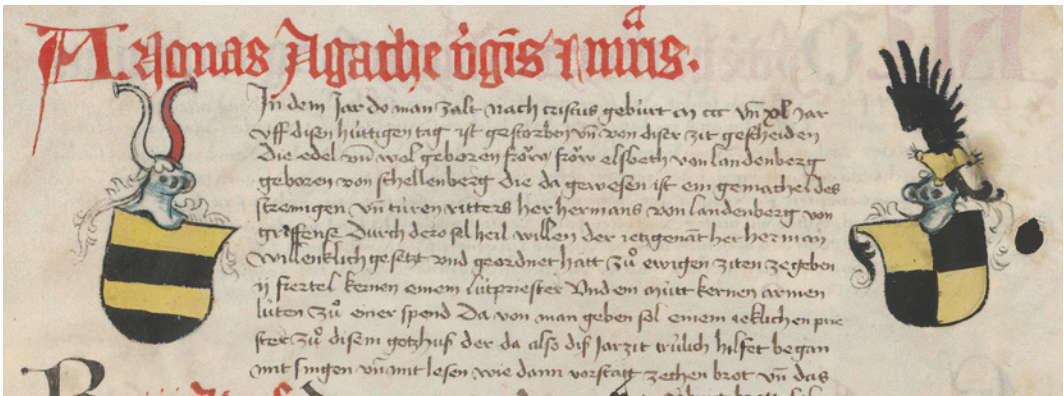 A. Nonas Agathe v̄gīs ⁊ mr̄is.
In dem Jar do man zalt nach cristus gebürt m ccc vn̄ xl Jar
vff disen hüttigen tag ist gestorben vn̄ von diser zit gescheiden
Die edel vn̄ wol geboren frow frow elsbeth von landenberg
geboren von schellenberg die da gewesen ist ein gemachel des
strengen vn̄ türen ritters her hermans von landenberg von
griffense Durch dero sel heil willen der ietzgenāt her herman
willenklich gesetzt vnd geordnet hatt zů ewigen ziten ze geben
ij fiertel kernen einem lütpriester Vnd ein mütt kernen armen
lüten zů einer spend Da von man geben sol einem ieklichen prie
ster zů disem gotzhus der da also dis Jarzit trülich hilfet began
mit singen vn̄ mit lesen wie dann vorstatt zechen brot vn̄ das